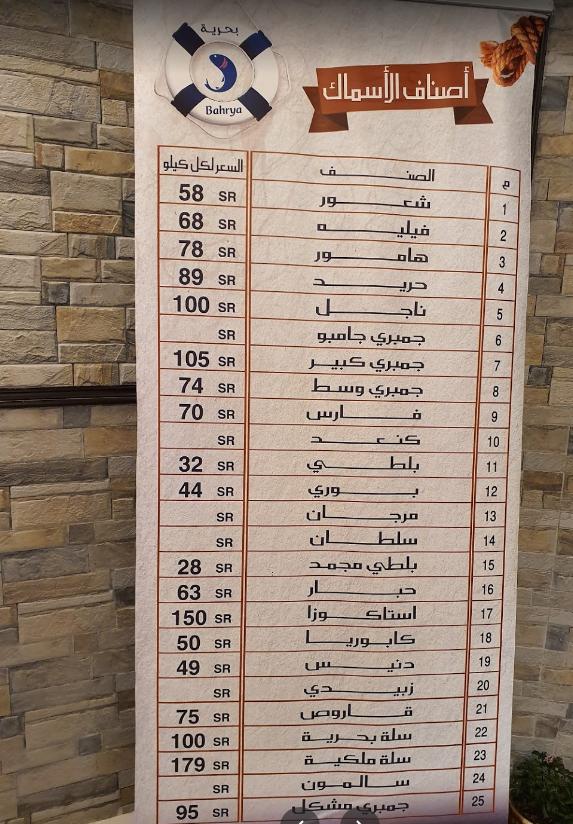 بحرية
Bahrya
أصناف الأسماك
م الصنف السعر لكل كيلو
1 شعور 58 SR
2 فيليه 68 SR
3 هامور 78 SR
4 حريد 89 SR
5 ناجل 100 SR
6 جمبري جامبو SR
7 جمبري كبير 105 SR
8 جمبري وسط 74 SR
9 فارس 70 SR
10 كنعد SR
11 بلطي 32 SR
12 بوري 44 SR
13 مرجان SR
14 سلطان SR
15 بلطي مجمد 28 SR
16 حبار 63 SR
17 استاكوزا 150 SR
18 كابوريا 50 SR
19 دنيس 49 SR
20 زبيدي SR
21 قاروص 75 SR
22 سلة بحرية 100 SR
23 سلة ملكية 179 SR
24 سالمون SR
25 جمبري مشكل 95 SR